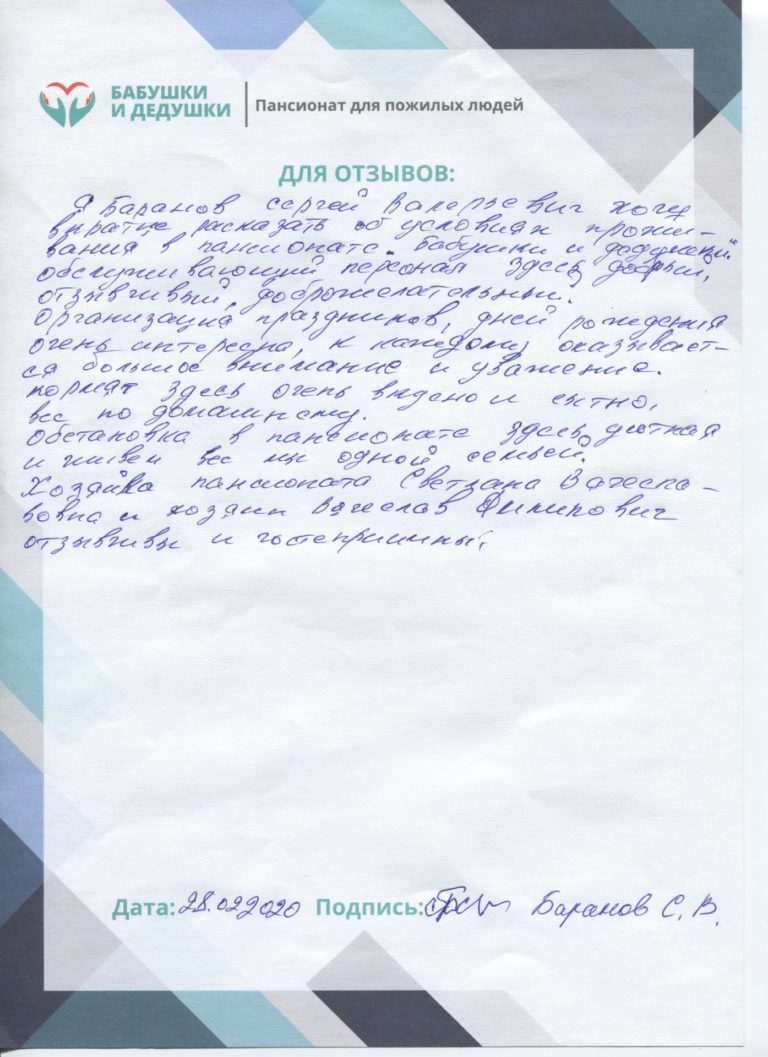 БАБУШКИ
И ДЕДУШКИ
Пансионат для пожилых людей
ДЛЯ ОТЗЫВОВ:
Я Баранов Сергей Валерьевич хочу
вкратце расказать об условиях прожи-
вания в пансионате. Бабушки и дедушки"
обслуживающий персонал здесь добрый,
отзывчивый, доброжелательный.
Организация праздников, дней рождения
очень интересна, к каждому оказывает-
ся большое внимание и уважение.
кормят здесь очень вкусно и сытно,
вес по домашнему.
обстановка в пансионате здесь уютная
и живем вес мы одной семьей.
Хозяйка пансионата Светлана Вачесла-
вовна и хозяин Вячеслав Филипович
отзывчивы и гостеприимный,
Дата: 28.02.2020 Подпись: Баранов С. В.